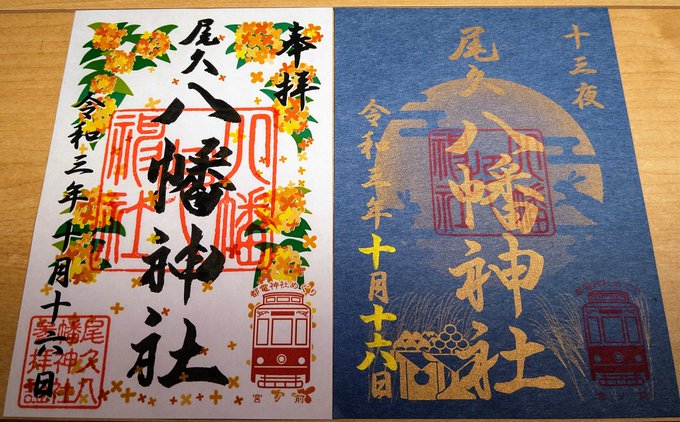 奉拝
尾久
八幡神社
令和三年十月十六日
八幡神社
尾久八幡神社参拝
都電神社めぐり
宮ノ前
十三夜
尾久
八幡神社
令和三年十月十六日
八幡神社
都電神社めぐり
宮ノ前